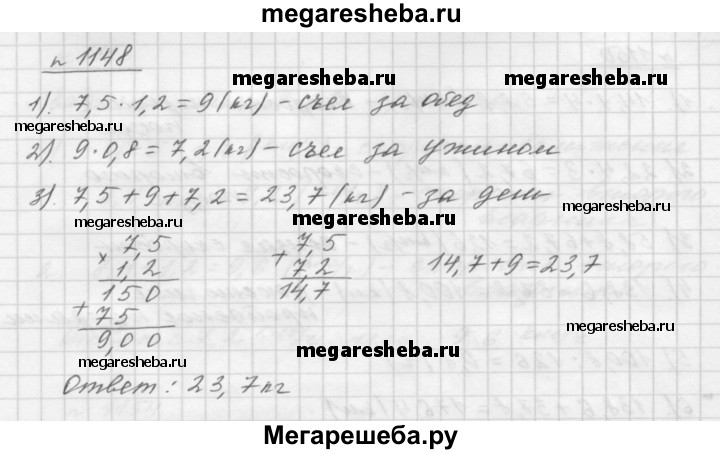 megaresheba.ru
п 1148
megaresheba.ru
1). 7,5 · 1,2 = 9 (кг) – съел за обед
megaresheba.ru
2). 9 · 0,8 = 7,2 (кг) – съел за ужином
3). 7,5 + 9 + 7,2 = 23,7 (кг) – за день
megaresheba.ru
megaresheba.ru
megaresheba.ru
× 7,5
1,2
150
+ 75
9,00
+ 7,5
7,2
14,7
14,7 + 9 = 23,7
megaresheba.ru
megaresheba.ru
megaresheba.ru
Ответ: 23,7 кг
Мегарешеба.ру